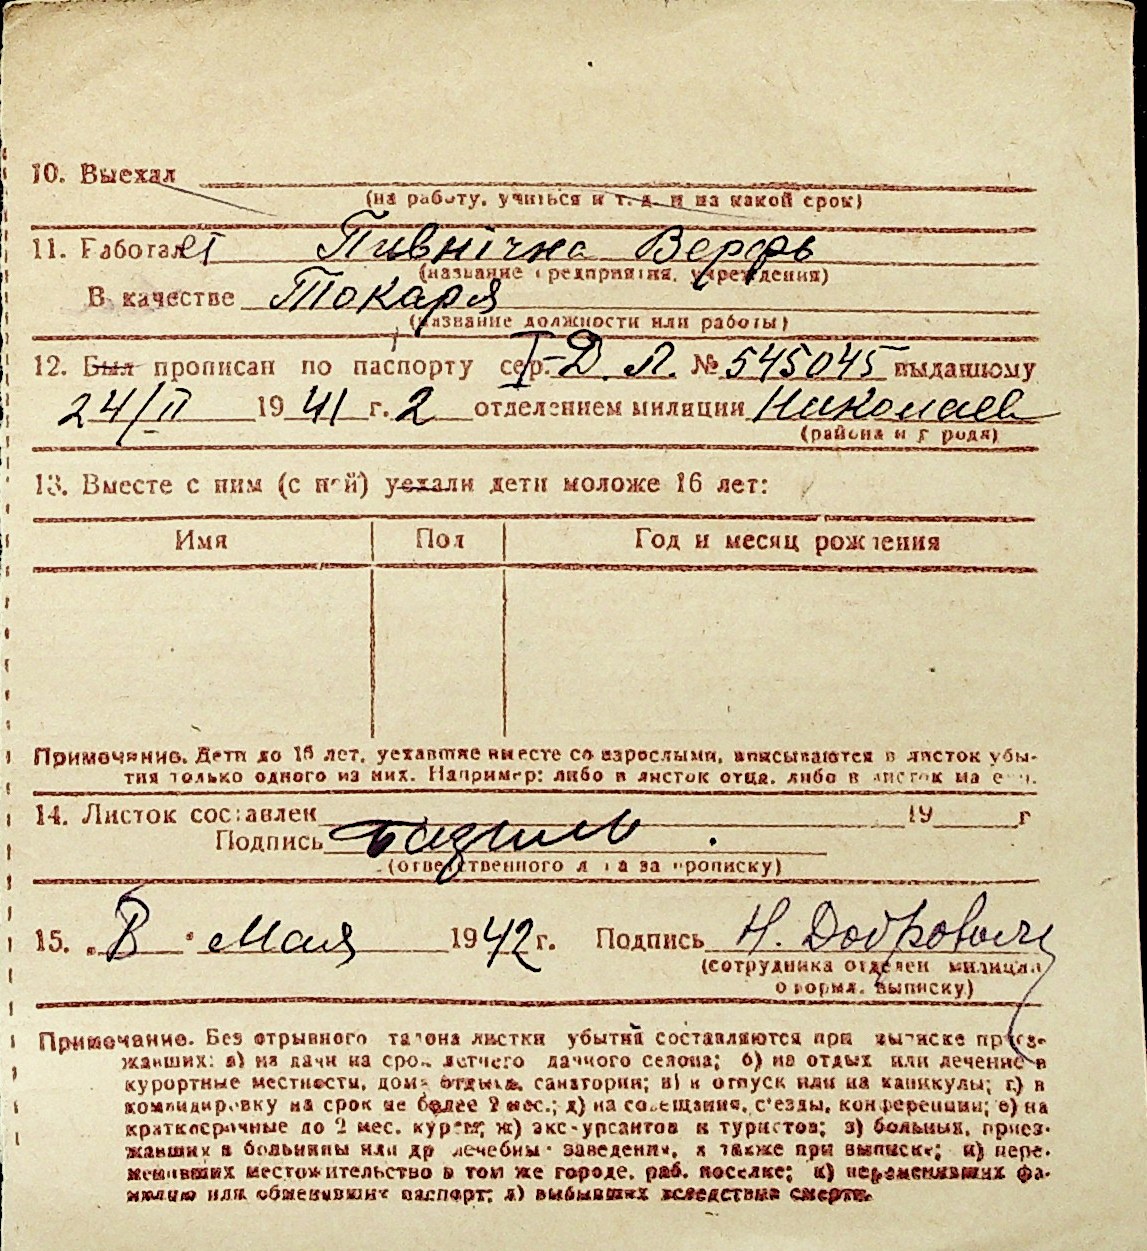 10. Выехал
(на работу, учиться и т. д. и на какой срок)
11. Работает Пивнічна Верфь
(название предприятия, учреждения)
В качестве Токаря
(название должности или работы)
12. Был прописан по паспорту сер. I-Д Л. № 545045 выданному
24/II 1941 г. 2 отделением милиции Николаев
(района и города)
13. Вместе с ним (с ней) уехали дети моложе 16 лет:
Имя Пол Год и месяц рождения
Примечание. Дети до 16 лет, уехавшие вместе со взрослыми, вписываются в листок убы-
тия только одного из них. Например: либо в листок отца, либо в листок матери.
14. Листок составлен 19 г
Подпись
(ответственного лица за прописку)
15. „ 8 " Мая 1942 г. Подпись Н. Добровольс
(сотрудника отделен милиции
оформл. выписку)
Примечание. Без отрывного талона листки убытия составляются при выписке приез-
жавших: а) на дачи на срок летнего дачного сезона; б) на отдых или лечение в
курортные местности, дома отдыха, санатории; в) в отпуск или на каникулы; г) в
командировку на срок не более 2 мес.; д) на совещания, с'езды, конференции; е) на
краткосрочные до 2 мес. курсы; ж) экскурсантов и туристов; з) больных, приез-
жавших в больницы или др лечебные заведения, а также при выписке; и) пере-
менивших местожительство в том же городе, раб. поселке; к) переменивших фа-
милию или обменивших паспорт; л) выбывших вследствие смерти.